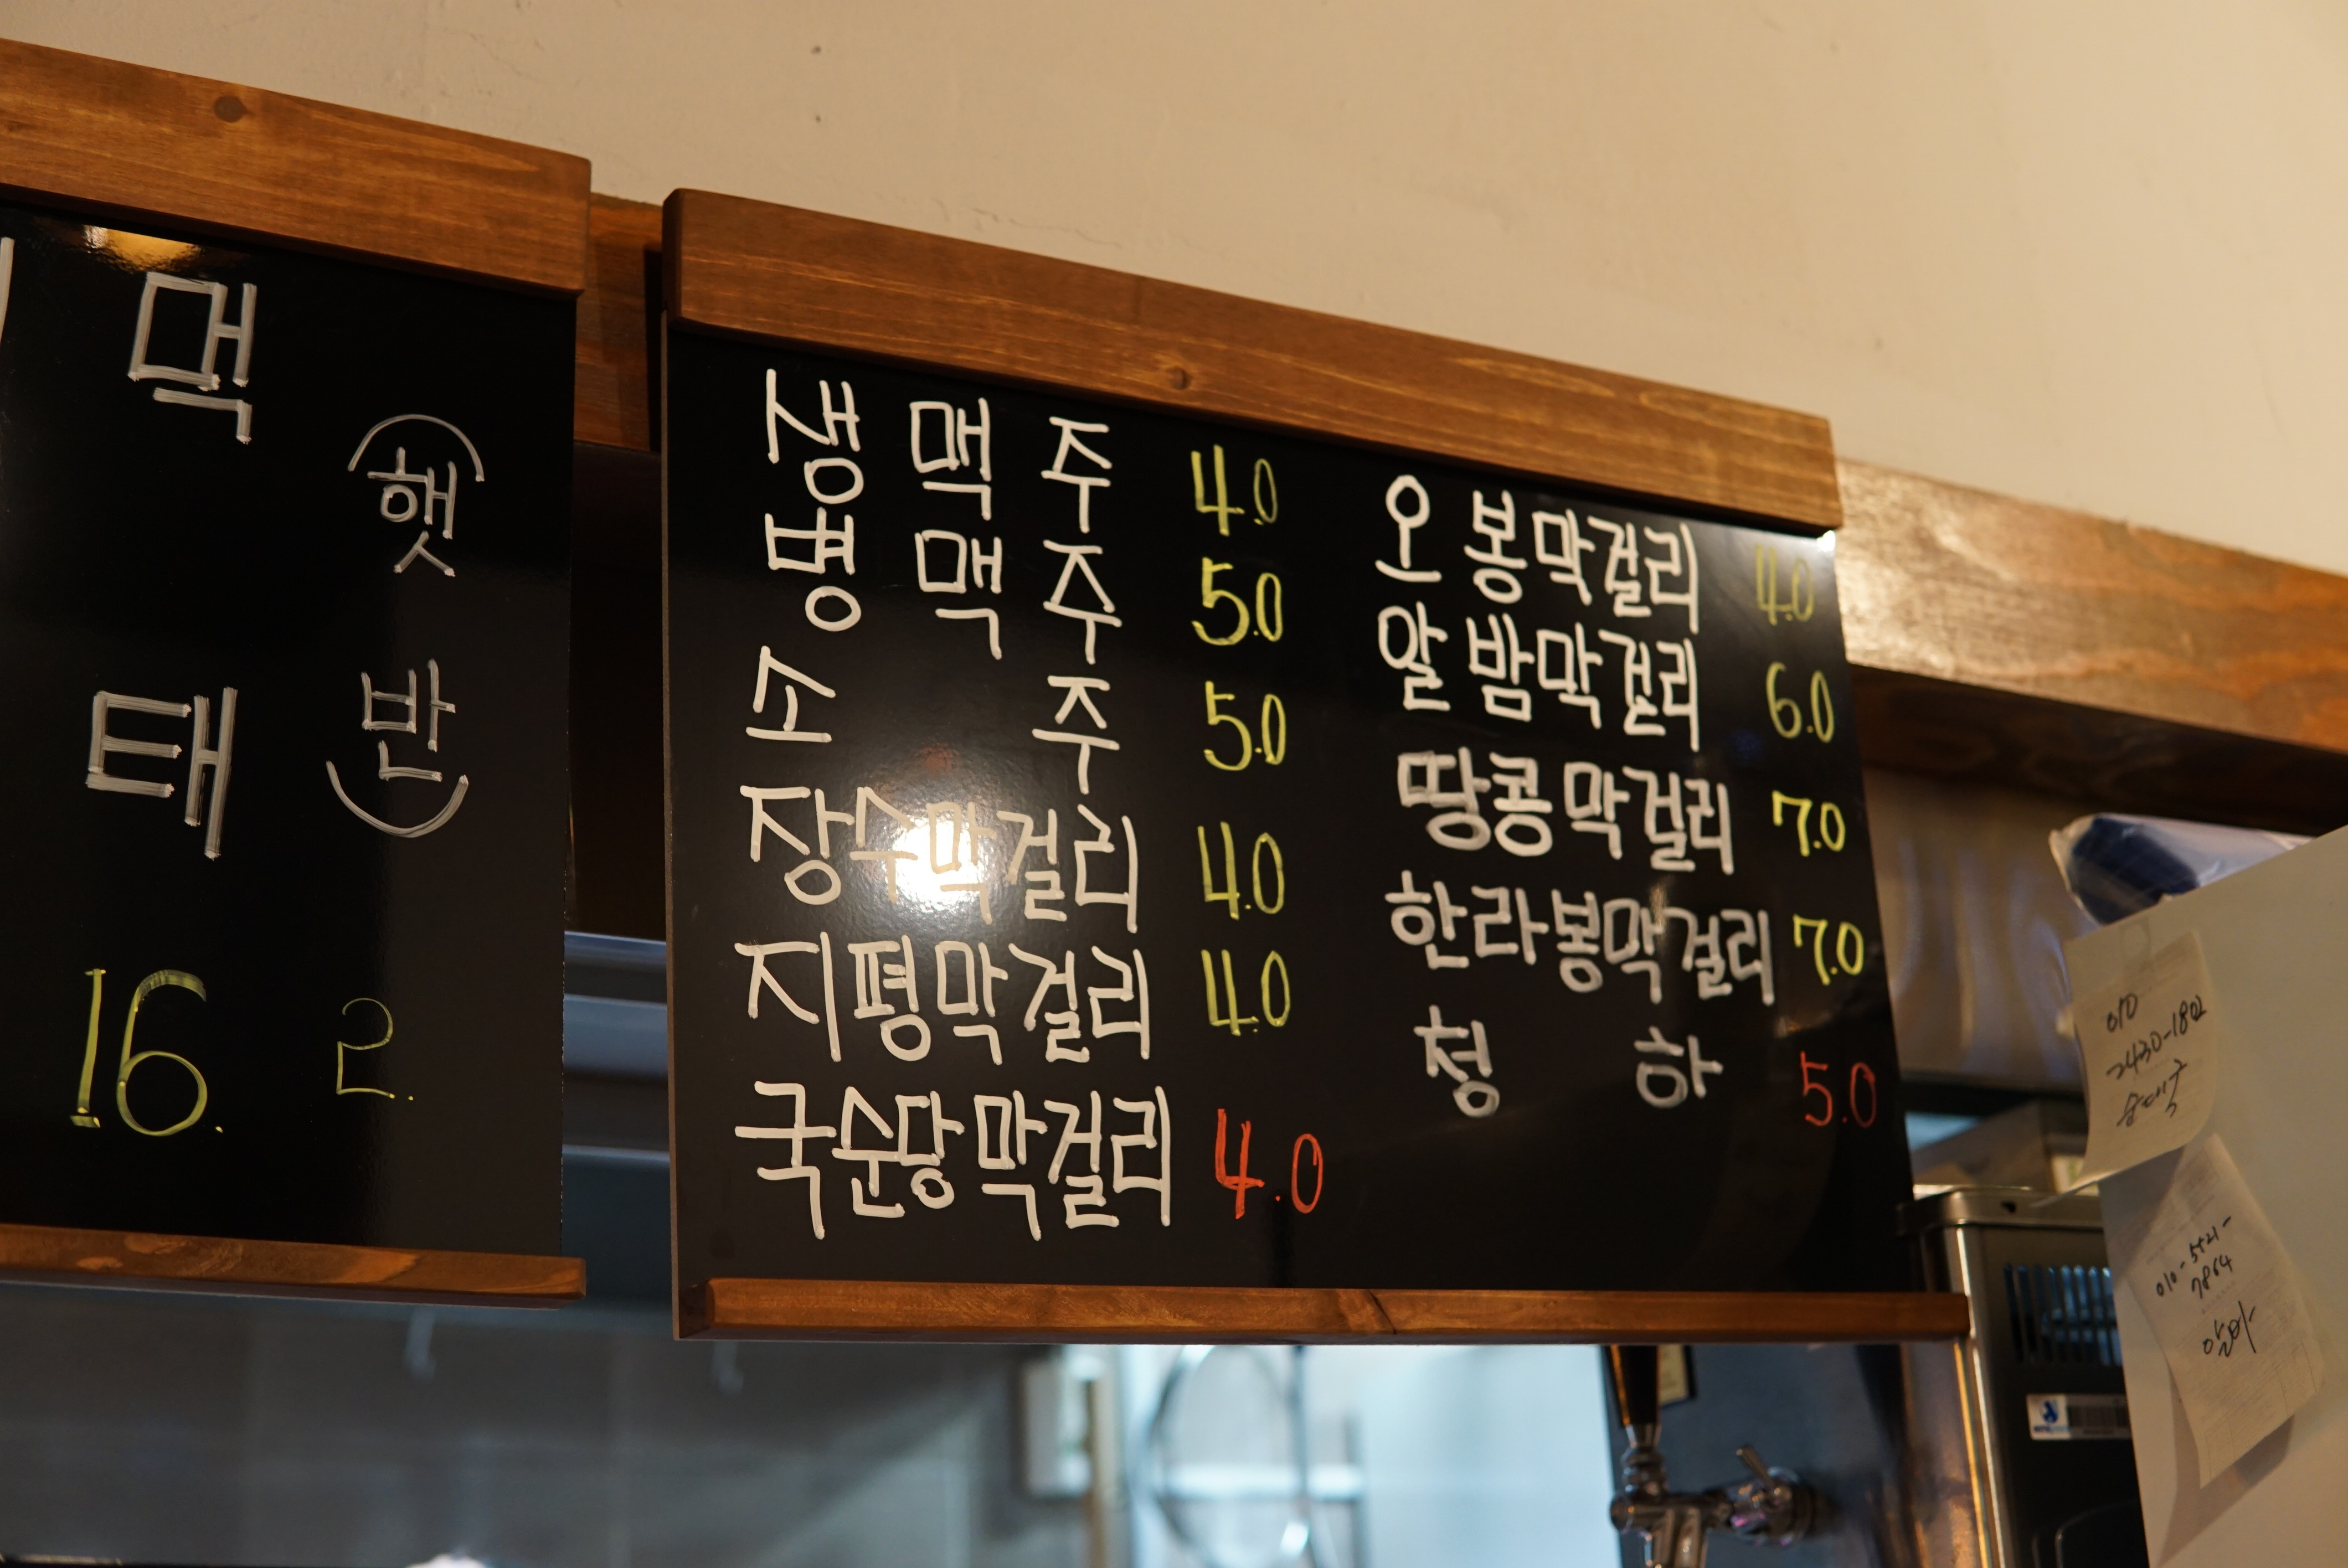 맥
태
16.
(햇
반)
2.
생 맥 주 4.0
병 맥 주 5.0
소 주 5.0
장수막걸리 4.0
지평막걸리 4.0
국순당막걸리 4.0
오 봉막걸리 4.0
알 밤막걸리 6.0
땅콩막걸리 7.0
한라봉막걸리 7.0
청 하 5.0
010
010-5421-
7864